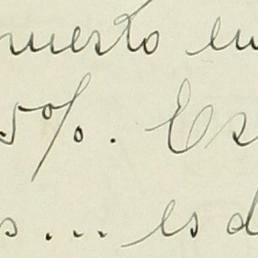 puesto en
5%. Es
s... es d